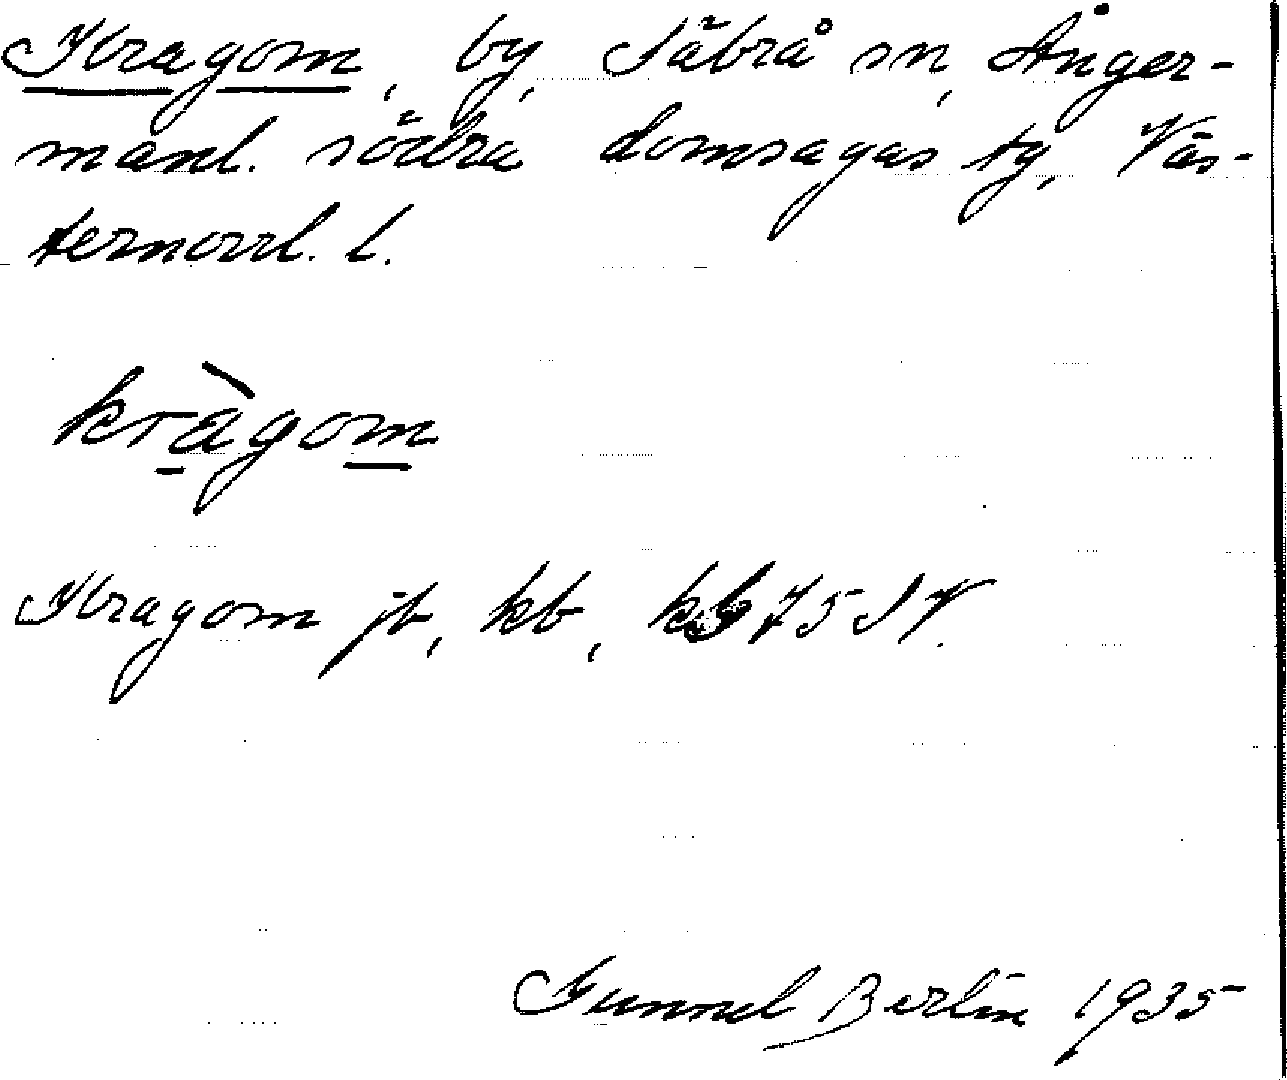 Kragom, by, Säbrå sn, Ånger-
manl. södra domsagas tg, Väs-
ternorrl. l.
kràgom
Kragom jb, kb, kb 75 SV.
Gunnel Berlin 1935